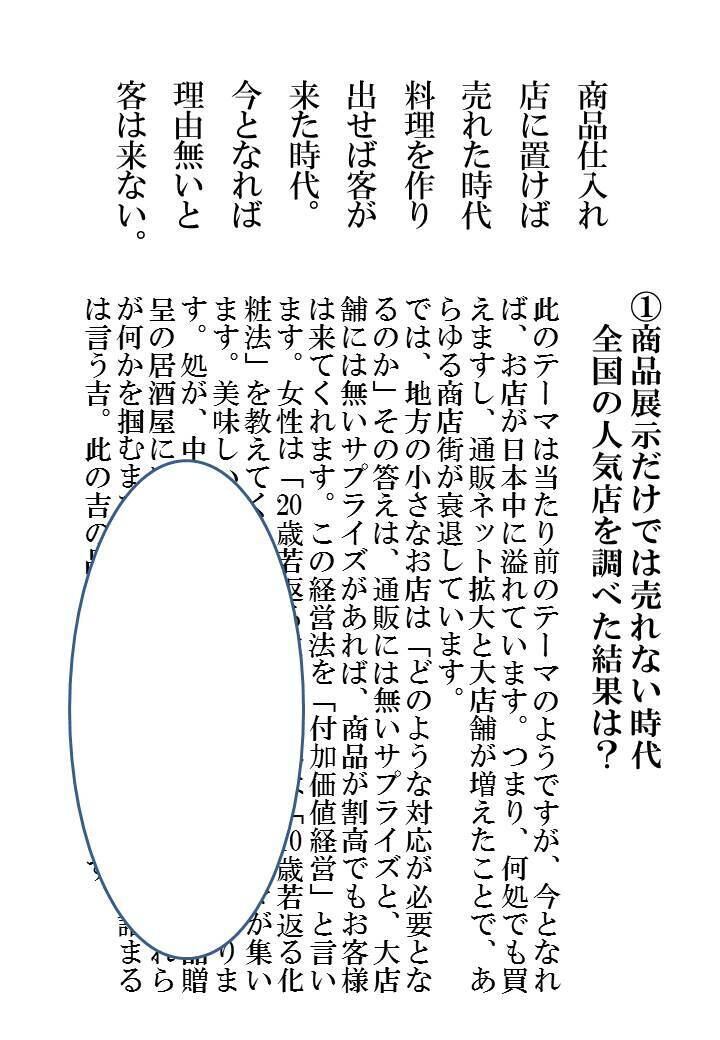 商品仕入れ
店に置けば
売れた時代
料理を作り
出せば客が
来た時代。
今となれば
理由無いと
客は来ない。
①商品展示だけでは売れない時代
全国の人気店を調べた結果は?
此のテーマは当たり前のテーマのようですが、今となれ
ば、お店が日本中に溢れています。つまり、何処でも買
えますし、通販ネット拡大と大店舗が増えたことで、あ
らゆる商店街が衰退しています。
では、地方の小さなお店は「どのような対応が必要とな
るのか」その答えは、通販には無いサプライズと、大店
舗には無いサプライズがあれば、商品が割高でもお客様
は来てくれます。この経営法を「付加価値経営」と言い
ます。女性は「20歳若返る 「10歳若返る化
粧法」を教えてく が集い
ます。美味しい りま
す。処が、中 贈
呈の居酒屋に れら
が何かを掴むま 詰まる
は言う吉。此の吉の す